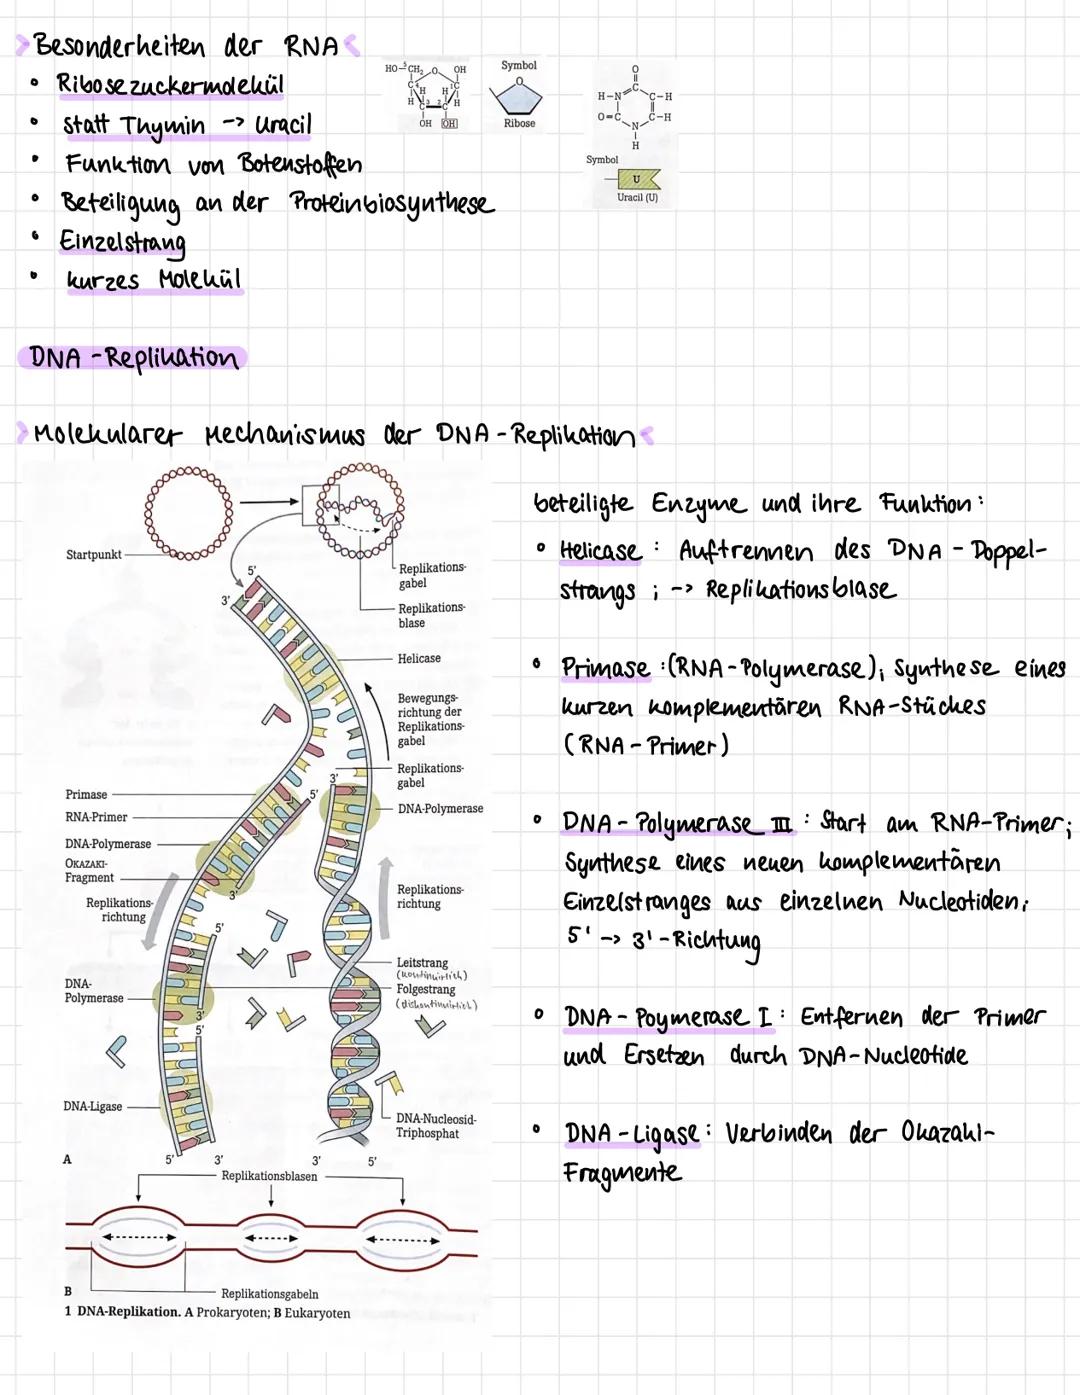 Besonderheiten der RNA
• Ribosezuckermolekül
• statt Thymin -> Uracil
• Funktion von Botenstoffen
• Beteiligung an der Proteinbiosynthese
• Einzelstrang
• kurzes Molekül
HO-5CH2 O OH
C4 H H 1C
H C3 2C H
OH OH
Symbol
Ribose
O
H-N C C-H
O=C N C-H
H
Symbol
U
Uracil (U)
DNA-Replikation
Molekularer Mechanismus der DNA-Replikation
Startpunkt
5'
3'
Replikations-
gabel
Replikations-
blase
Helicase
Bewegungs-
richtung der
Replikations-
gabel
Replikations-
gabel
3'
5'
DNA-Polymerase
Primase
RNA-Primer
DNA-Polymerase
OKAZAKI-
Fragment
Replikations-
richtung
3'
5'
Replikations-
richtung
Leitstrang
(kontinuirlich)
Folgestrang
(diskontinuirlich)
DNA-
Polymerase
3'
5'
DNA-Ligase
DNA-Nucleosid-
Triphosphat
A
5' 3' 3' 5'
Replikationsblasen
B
Replikationsgabeln
1 DNA-Replikation. A Prokaryoten; B Eukaryoten
beteiligte Enzyme und ihre Funktion:
• Helicase : Auftrennen des DNA-Doppel-
strangs ; -> Replikationsblase
• Primase :(RNA-Polymerase); Synthese eines
kurzen komplementären RNA-Stückes
(RNA-Primer)
• DNA-Polymerase III : Start am RNA-Primer;
Synthese eines neuen komplementären
Einzelstranges aus einzelnen Nucleotiden;
5' -> 3'-Richtung
• DNA-Poymerase I : Entfernen der Primer
und Ersetzen durch DNA-Nucleotide
• DNA-Ligase : Verbinden der Okazaki-
Fragmente